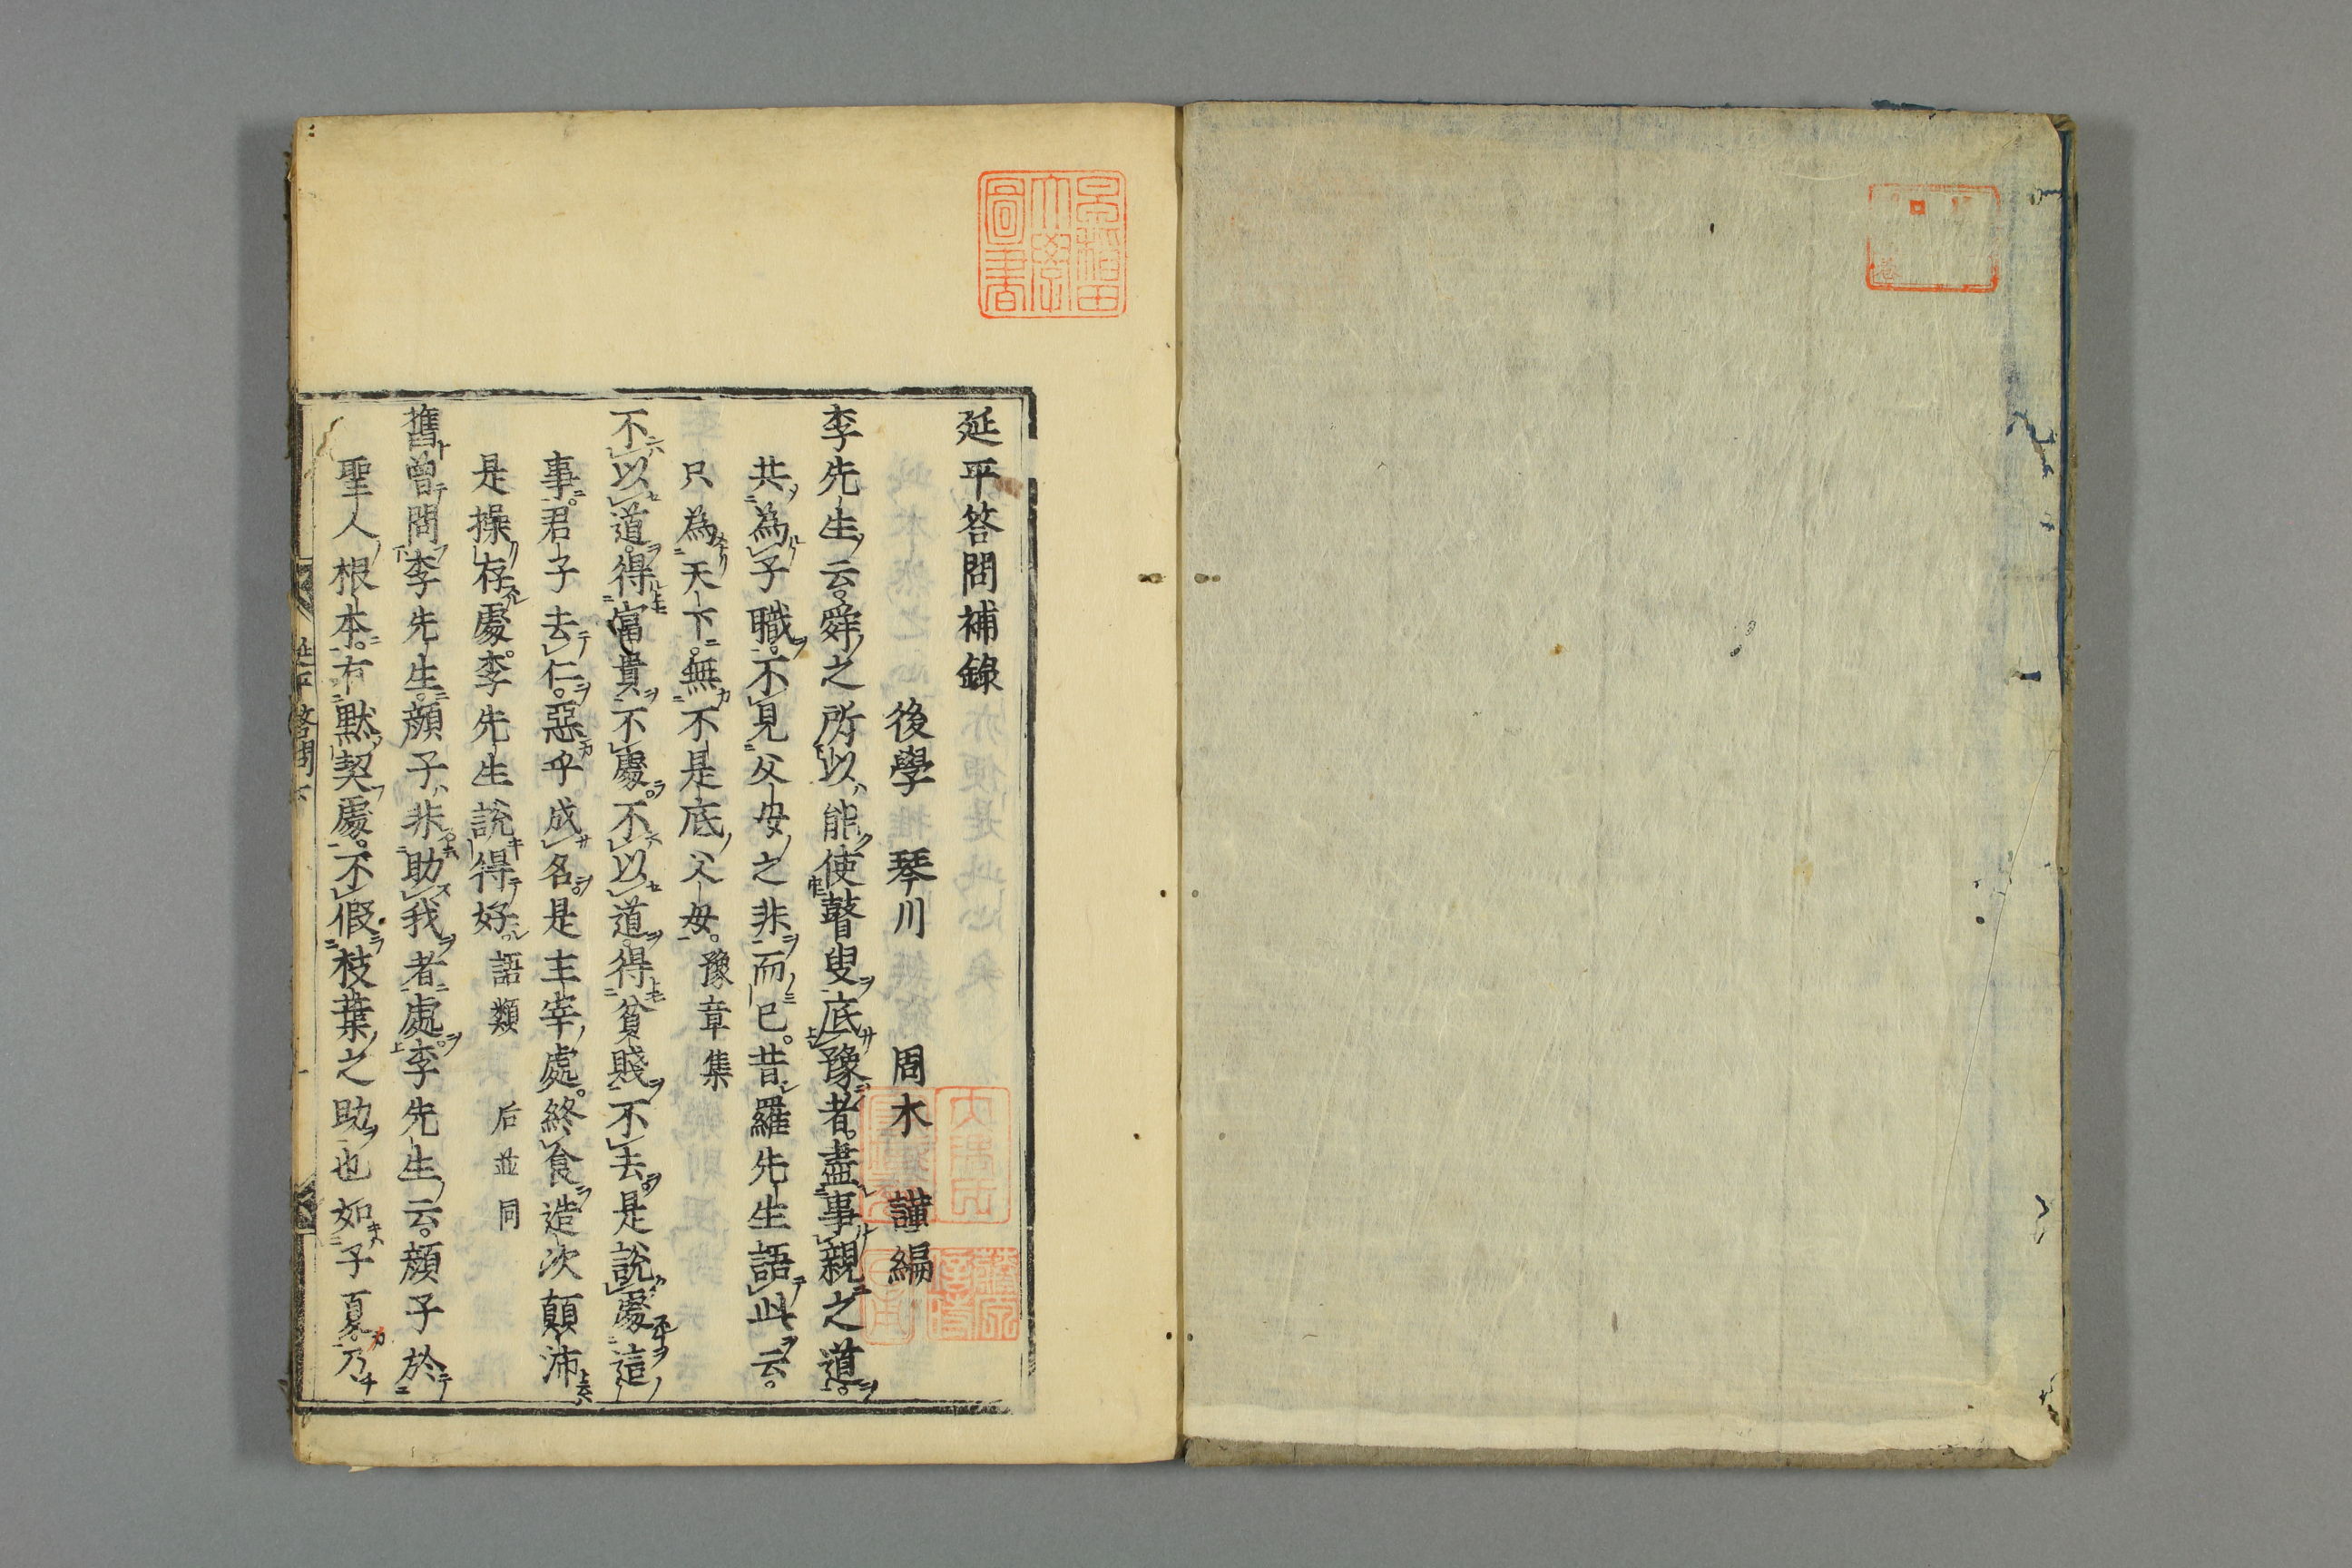 延平答問補錄
後學 琴川 周木 謹編
李先生云。舜之所以能使瞽叟底豫者。盡事親之道。
共為子職。不見父母之非而已。昔羅先生語此云。
只為天下。無不是底父母。豫章集
不以道。得富貴不處。不以道。得貧賤不去。是說處這
事。君子去仁。惡乎成名。是主宰處。終食造次顛沛
是操存處。李先生說得好。語類 后並同
舊曾問李先生。顔子非助我者處。李先生云。顔子於
聖人根本。有默契處。不假枝葉之助也如子夏乃
延平答問下
一
早稻田大學圖書